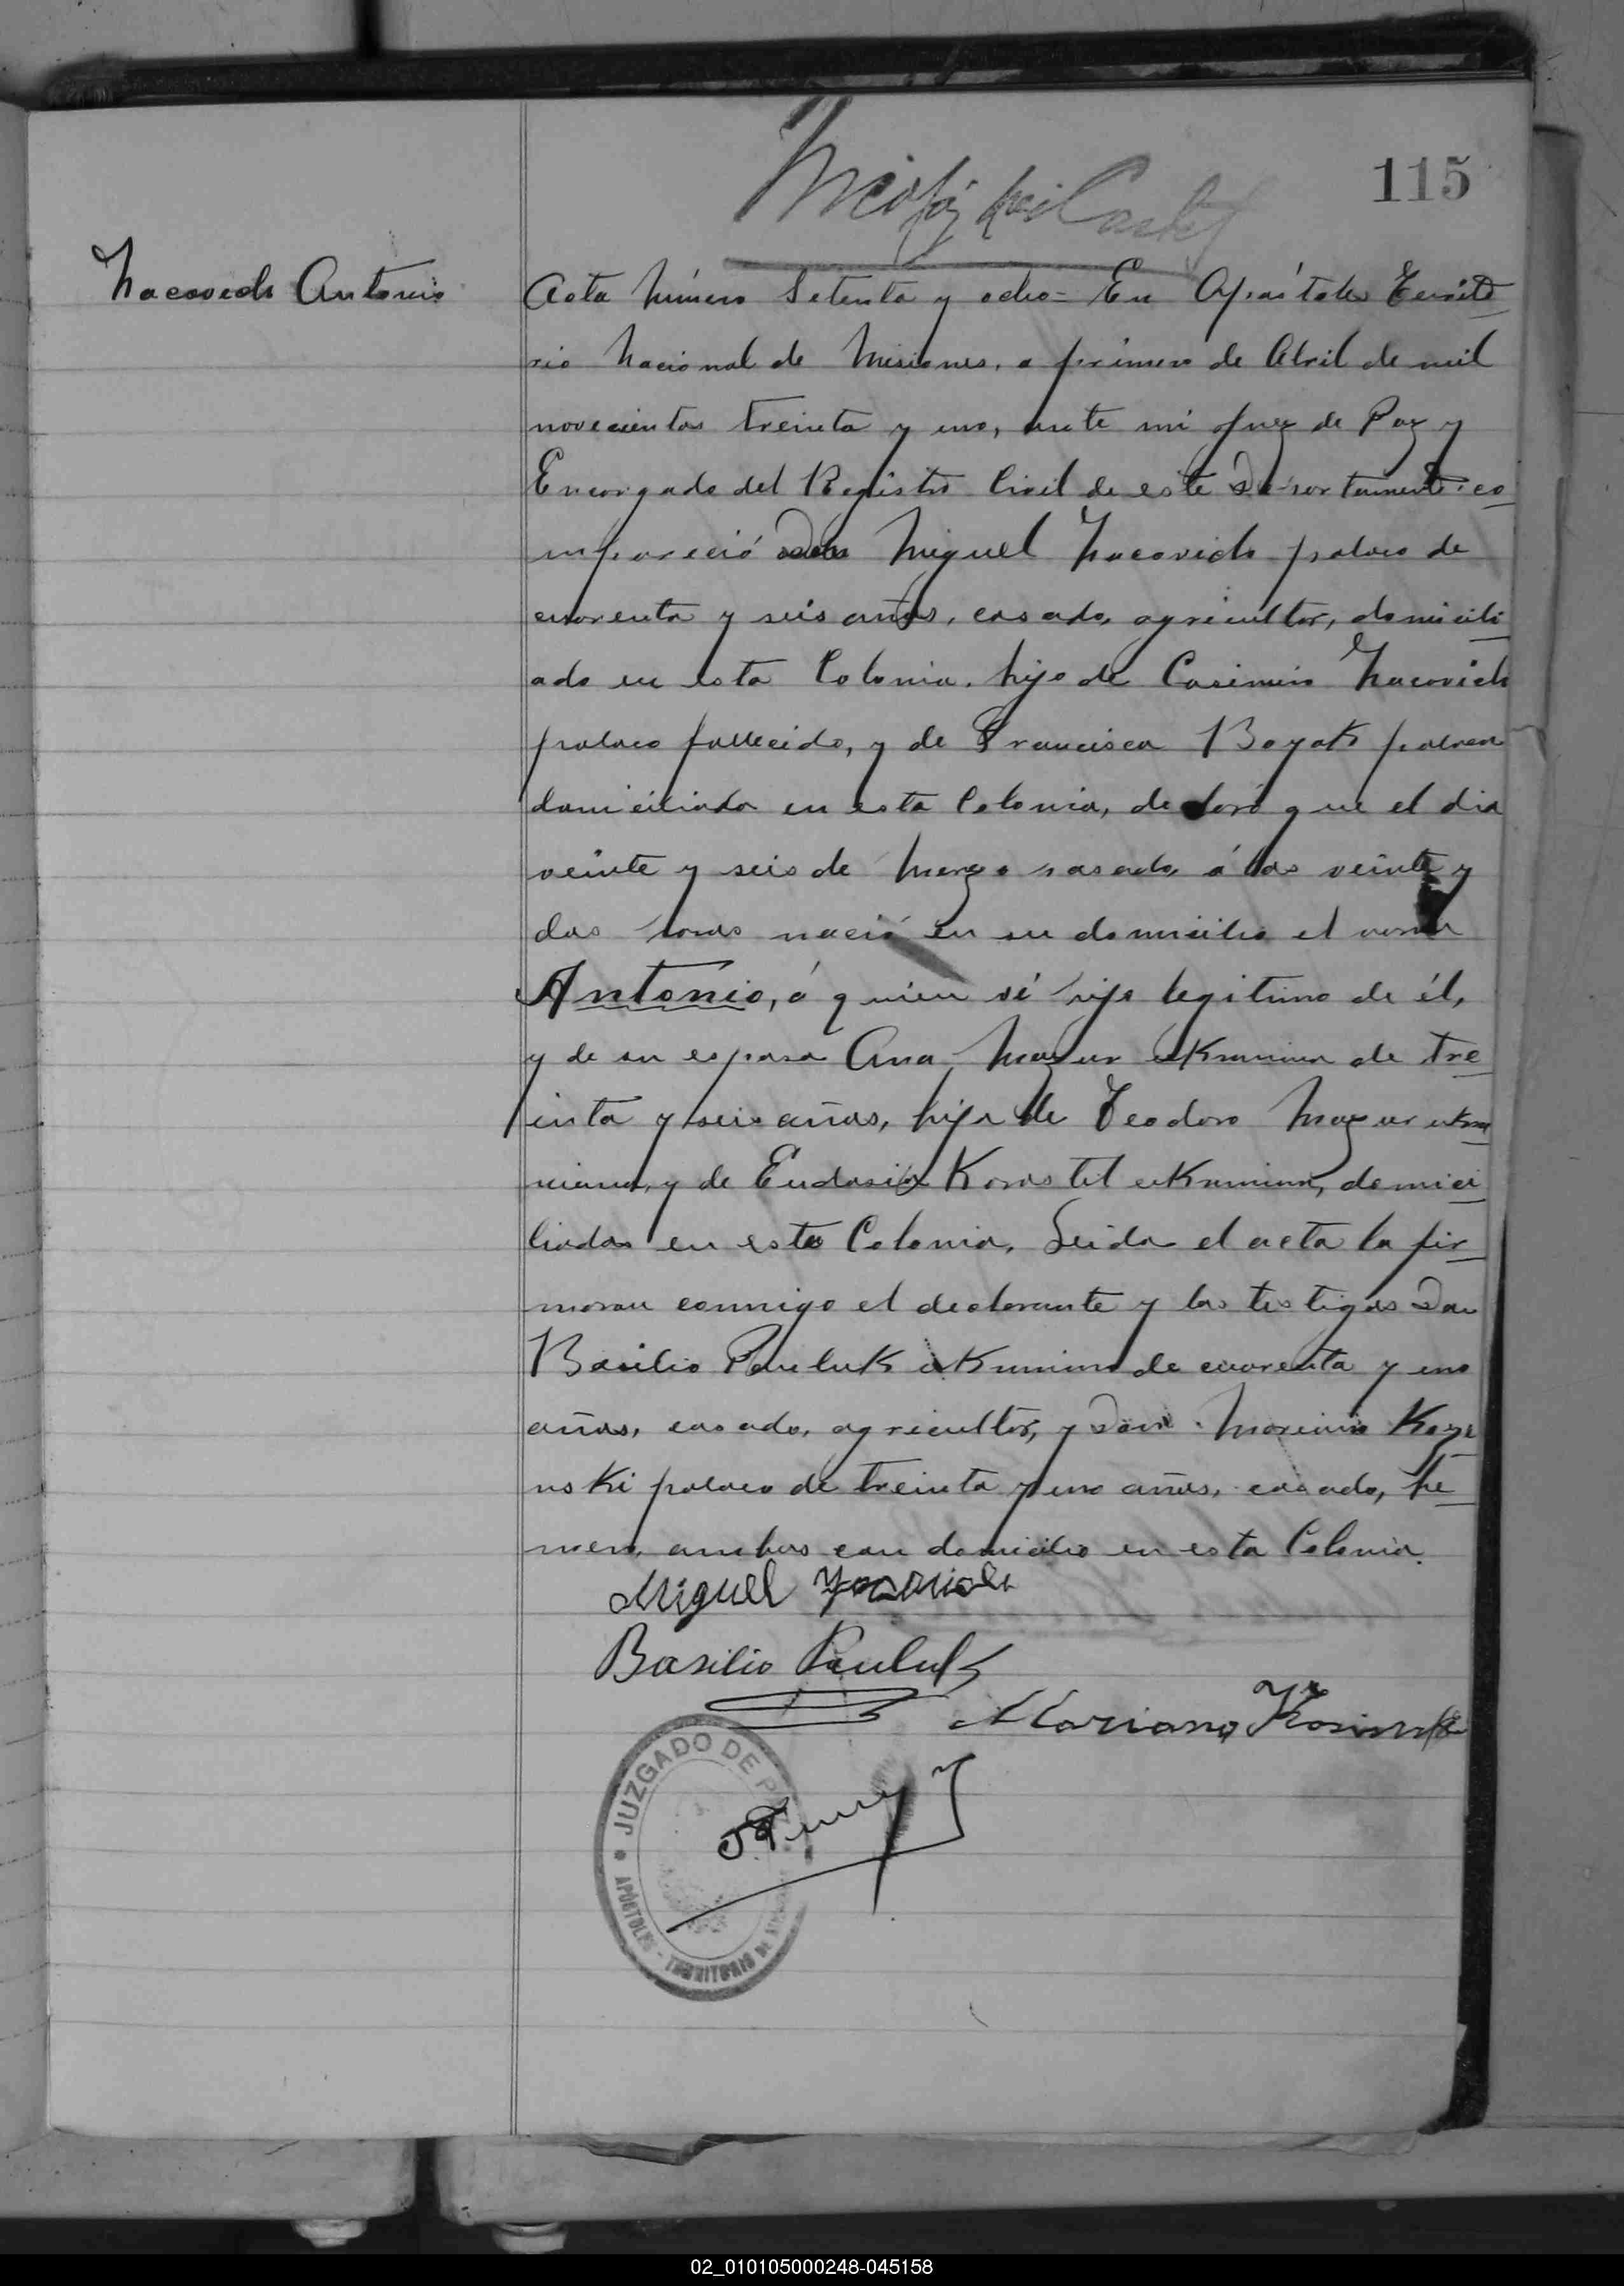 115
Nacovich Antonio
Acta Número Setenta y ocho= En Apóstoles Territo
rio Nacional de Misiones, a primero de Abril de mil
novecientos treinta y uno, ante mi Juez de Paz y
Encargado del Registro Civil de este Departamento: co
mpareció Don Miguel Nacovich polaco de
cuarenta y seis años, casado, agricultor, domicili
ado en esta Colonia. hijo de Casimiro Nacovich
polaco fallecido, y de Francisca Boyak polaca
domiciliada en esta Colonia, declaró que el dia
veinte y seis de Marzo pasado, á las veinte y
dos horas nació en su domicilio el varon
Antonio, á quien vi hijo legitimo de él,
y de su esposa Ana Mazur ukraniana de tre
inta y seis años, hija de Teodoro Mazur ukra
niano, y de Eudosia Korostel ukraniana, domici
liados en esta Colonia. Leida el acta la fir
maron conmigo el declarante y los testigos Don
Basilio Pauluk ukraniano de cuarenta y uno
años, casado, agricultor, y Don Mariano Kozi
nski polaco de treinta y uno años, casado, he
rrero, ambos con domicilio en esta Colonia.
Miguel
Basilio Pauluk
Mariano Kosinski
JUZGADO DE PAZ
APÓSTOLES - TERRITORIO DE MISIONES
02_010105000248-045158